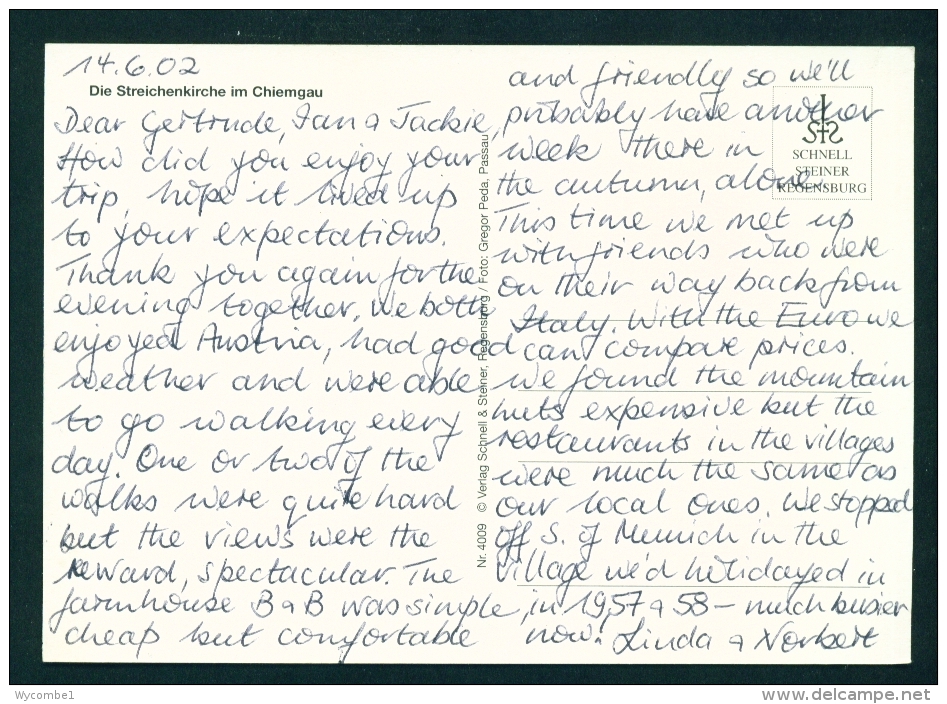 14.6.02
Die Streichenkirche im Chiemgau
Dear Gertrude, Ian & Jackie,
How did you enjoy your
trip, hope it lived up
to your expectations.
Thank you again for the
evening together, we both
enjoyed Austria, had good
weather and were able
to go walking every
day. One or two of the
walks were quite hard
but the views were the
reward, spectacular. The
farmhouse B & B was simple,
cheap but comfortable
and friendly so we'll
probably have another
week there in
the autumn, alone.
This time we met up
with friends who were
on their way back from
Italy. With the Euro we
can compare prices.
We found the mountain
huts expensive but the
restaurants in the villages
were much the same as
our local ones. We stopped
off S. of Munich in the
village we'd holidayed in
in 1957 & 58 – much busier
now. Linda & Norbert
Nr. 4009 © Verlag Schnell & Steiner, Regensburg / Foto: Gregor Peda, Passau
SCHNELL
STEINER
REGENSBURG
Wycombe1
www.delcampe.net